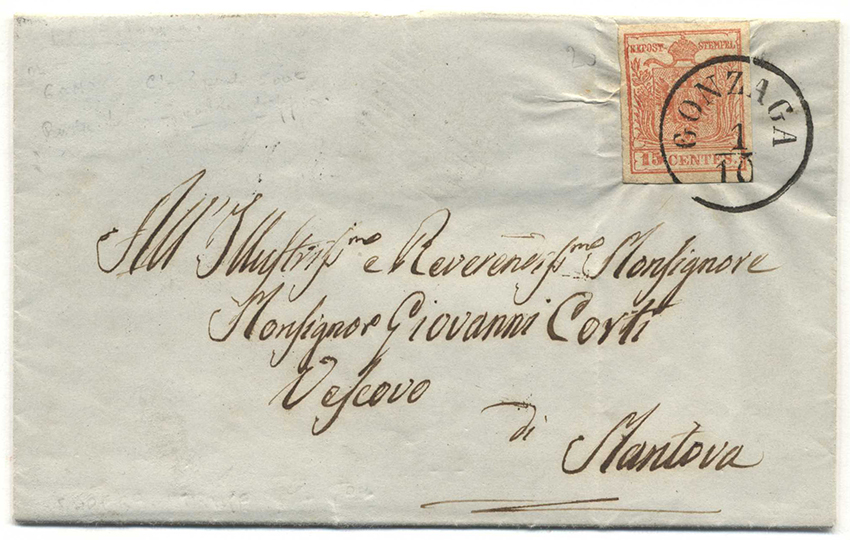 KKPOST-STEMPEL
15 CENTES.
GONZAGA
1/10
All' Illustriss.mo e Reverendiss.mo Monsignore
Monsignor Giovanni Corti
Vescovo
di
Mantova